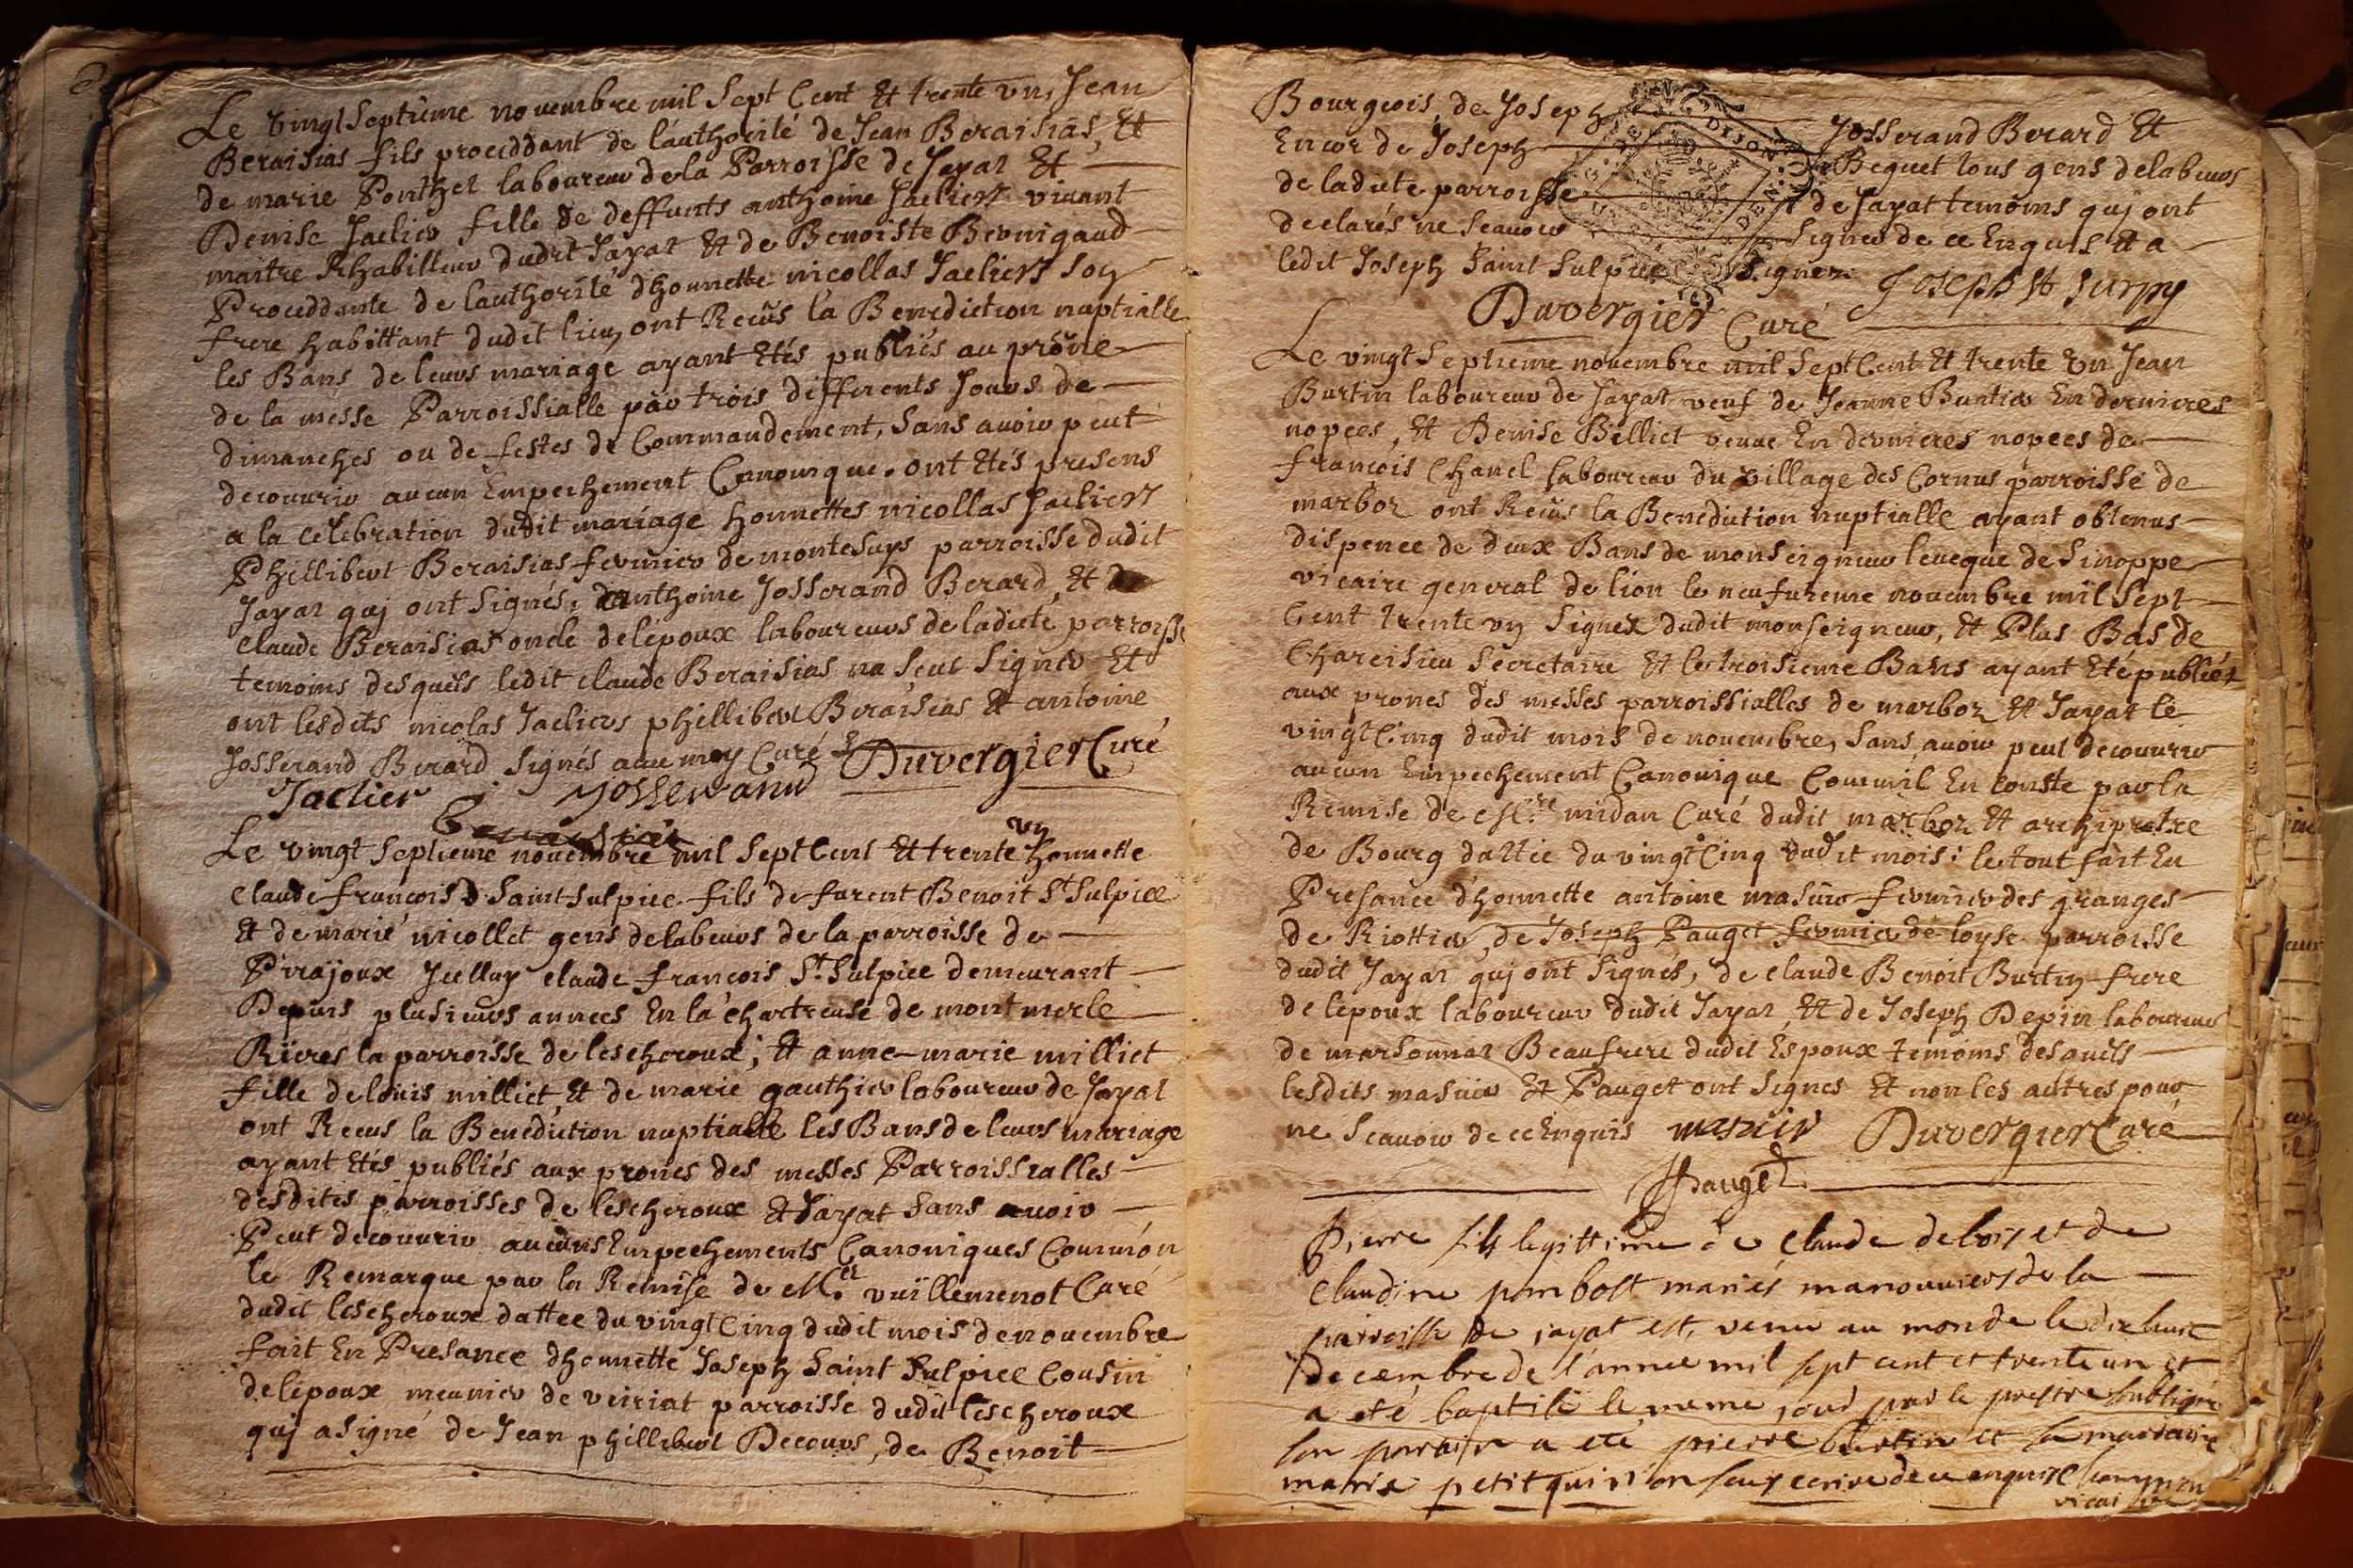 Le vingt Septiême novembre mil Sept Cent Et trente vn, Jean
Beraisias fils procéddant de l'authorité de Jean Beraisias, Et
de marie Ponthet laboureur de la Parroisse de Jayat Et
Denise Jaclier fille de deffunts anthoine Jacliers vivant
maitre Rhabilleur dudit Jayat Et de Benoiste
Proceddante de lauthorité dhonnette nicollas Jacliers son
frere habittant dudit lieu, ont Reçûs la Benediction nuptialle
les Bans de leurs mariage ayant Etés publiés au prône
de la mésse Parroissialle par trois differents Jours de
dimanches ou de festes de Commandement, Sans avoir peut
decouvrir aucun Empechement Canonique. ont Etés presens
a la celebration dudit mariage honnettes nicollas Jacliers
Phillibert Beraisias fermier de montesuys parroisse dudit
Jayat qui ont Signés, danthoine Josserand Berard, Et de
claude Beraisias oncle delépoux laboureurs de ladicte parroisse
temoins desquels ledit claude Beraisias na Sçeu Signer Et
ont lesdits nicolas Jacliers phillibert Beraisias Et antoine
Josserand Berard Signés avec moy Curé Duvergier Curé
Jaclier Josserand
Le vingt Septieme novembre mil Sept Cent Et trente vn honnette
claude françois d Saint Sulpice fils de furent Benoit St Sulpice
Et de marie nicollet gens delabeurs de la parroisse de
Pirajoux Icelluy claude françois St Sulpice demeurant
Depuis plusieurs années En la chartreuse de montmerle
Riere la parroisse de lescheroux; Et anne-marie milliet
fille de louis milliet, Et de marie gauthier laboureur de Jayat
ont Recus la Benediction nuptialle les Bans de leurs mariage
ayant Etés publiés aux prones des messes Parroissialles
desdites parroisses de lescheroux Et Jayat Sans avoir
Peut decouvrir aucuns Empechements Canoniques Comme on
le Remarque par la Remise de Mre vuillemenot Curé
dudit lescheroux dattée du vingt Cinq dudit mois de novembre
fait En Presance dhonnette Joseph Saint Sulpice Cousin
delépoux meunier de veiriat parroisse dudit lescheroux
qui a Signé de Jean phillibert Decours, de Benoit
Bourgeois, de Joseph Josserand Berard Et
Encor de Joseph Beguet tous gens delabeurs
de ladicte parroisse de Jayat temoins qui ont
declarés ne Scavoir Signer de ce Enquis Et a
ledit Joseph Saint Sulpice Signez. Joseph St Surpy
Duvergier Curé
Le vingt Septieme novembre mil Sept Cent Et trente vn Jean
Burtin laboureur de Jayat veuf de Jeanne En dernieres
nopces, Et Denise Billiet veuve En dernieres nopces de
françois Chanel laboureur du village des Cornus parroisse de
marboz ont Recûs la Benediction nuptialle ayant obtenus
dispence de deux Bans de monseigneur leveque de Sinoppe
vicaire general de lion le neufvieme novembre mil Sept
Cent trente vn Signez dudit monseigneur, Et Plus Bas de
Secretaire Et le troisieme Bans ayant Eté publiéz
aux prones des messes parroissialles de marboz Et Jayat le
vingt Cinq dudit mois de novembre, Sans avoir peut decouvrir
aucun Empechement Canonique Comm'il En conste par la
Remise de Mre midan Curé dudit marboz Et archiprêtre
de Bourg dattée du vingt Cinq dudit mois: le tout fait En
Presance dhonnette antoine masuir fermier des granges
de Riottier, de Joseph Pauget fermier de loyse parroisse
dudit Jayat qui ont Signés, de claude Benoit Burtin frere
de lepoux laboureur dudit Jayat, Et de Joseph Depin laboureur
de marsonnaz Beaufrere dudit Espoux temoins desquels
lesdits masuir Et Pauget ont Signes Et non les autres pour
ne Scavoir de ce Enquis masuir Duvergier Curé
Pauget
Pierre fils legittime de Claude deloix et de
Claudine mariés manouvriers de la
parroisse de jayat est venu au monde le dix huit
decembre de l'année mil sept cent et trente un et
a eté baptisé le meme jour par le prestre soubsigné
son parrain a eté pierre burtin et sa marraine
marie petit qui n'on sceu ecrire de ce enquis
vicaire